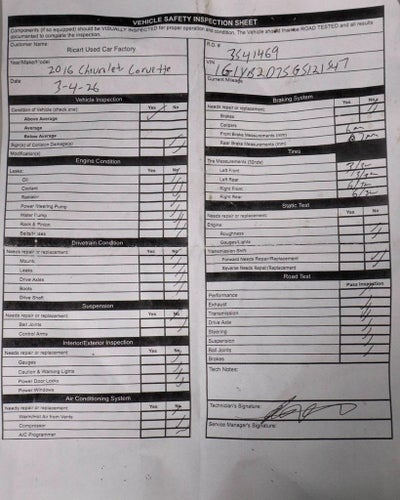 VEHICLE SAFETY INSPECTION SHEET
Components (if so equipped) should be VISUALLY INSPECTED for proper operation and condition. The Vehicle should then be ROAD TESTED and all results documented to complete the inspection.
Customer Name:
Ricart Used Car Factory
Year/Make/Model
2016 Chevrolet Corvette
Date
3-4-26
Vehicle Inspection
Condition of Vehicle (check one) Yes No
Above Average
Average
Below Average
Sign(s) of Collision Damage(s)
Modification(s)
Engine Condition
Leaks: Yes No
Oil
Coolant
Radiator
Power Steering Pump
Water Pump
Rack & Pinion
Belts/Hoses
Drivetrain Condition
Needs repair or replacement: Yes No
Mounts
Leaks
Drive Axles
Boots
Drive Shaft
Suspension
Needs repair or replacement Yes No
Ball Joints
Control Arms
Interior/Exterior Inspection
Needs repair or replacement: Yes No
Gauges
Caution & Warning Lights
Power Door Locks
Power Windows
Air Conditioning System
Needs repair or replacement: Yes No
Warm/Hot Air from Vents
Compressor
A/C Programmer
R.O. #
3541469
VIN
Current Mileage
Braking System
Needs repair or replacement: Yes No
Brakes
Calipers
Front Brake Measurements (mm)
Rear Brake Measurements (mm)
Tires
Tire Measurements (32nds)
Left Front
Left Rear
Right Front
Right Rear
Static Test
Needs repair or replacement: Yes No
Engine
Roughness
Gauges/Lights
Transmission Shift
Forward Needs Repair/Replacement
Reverse Needs Repair/Replacement
Road Test
Pass Inspection
Performance
Exhaust
Transmission
Drive Axle
Steering
Suspension
Ball Joints
Brakes
Tech Notes:
Technician's Signature:
Service Manager's Signature: